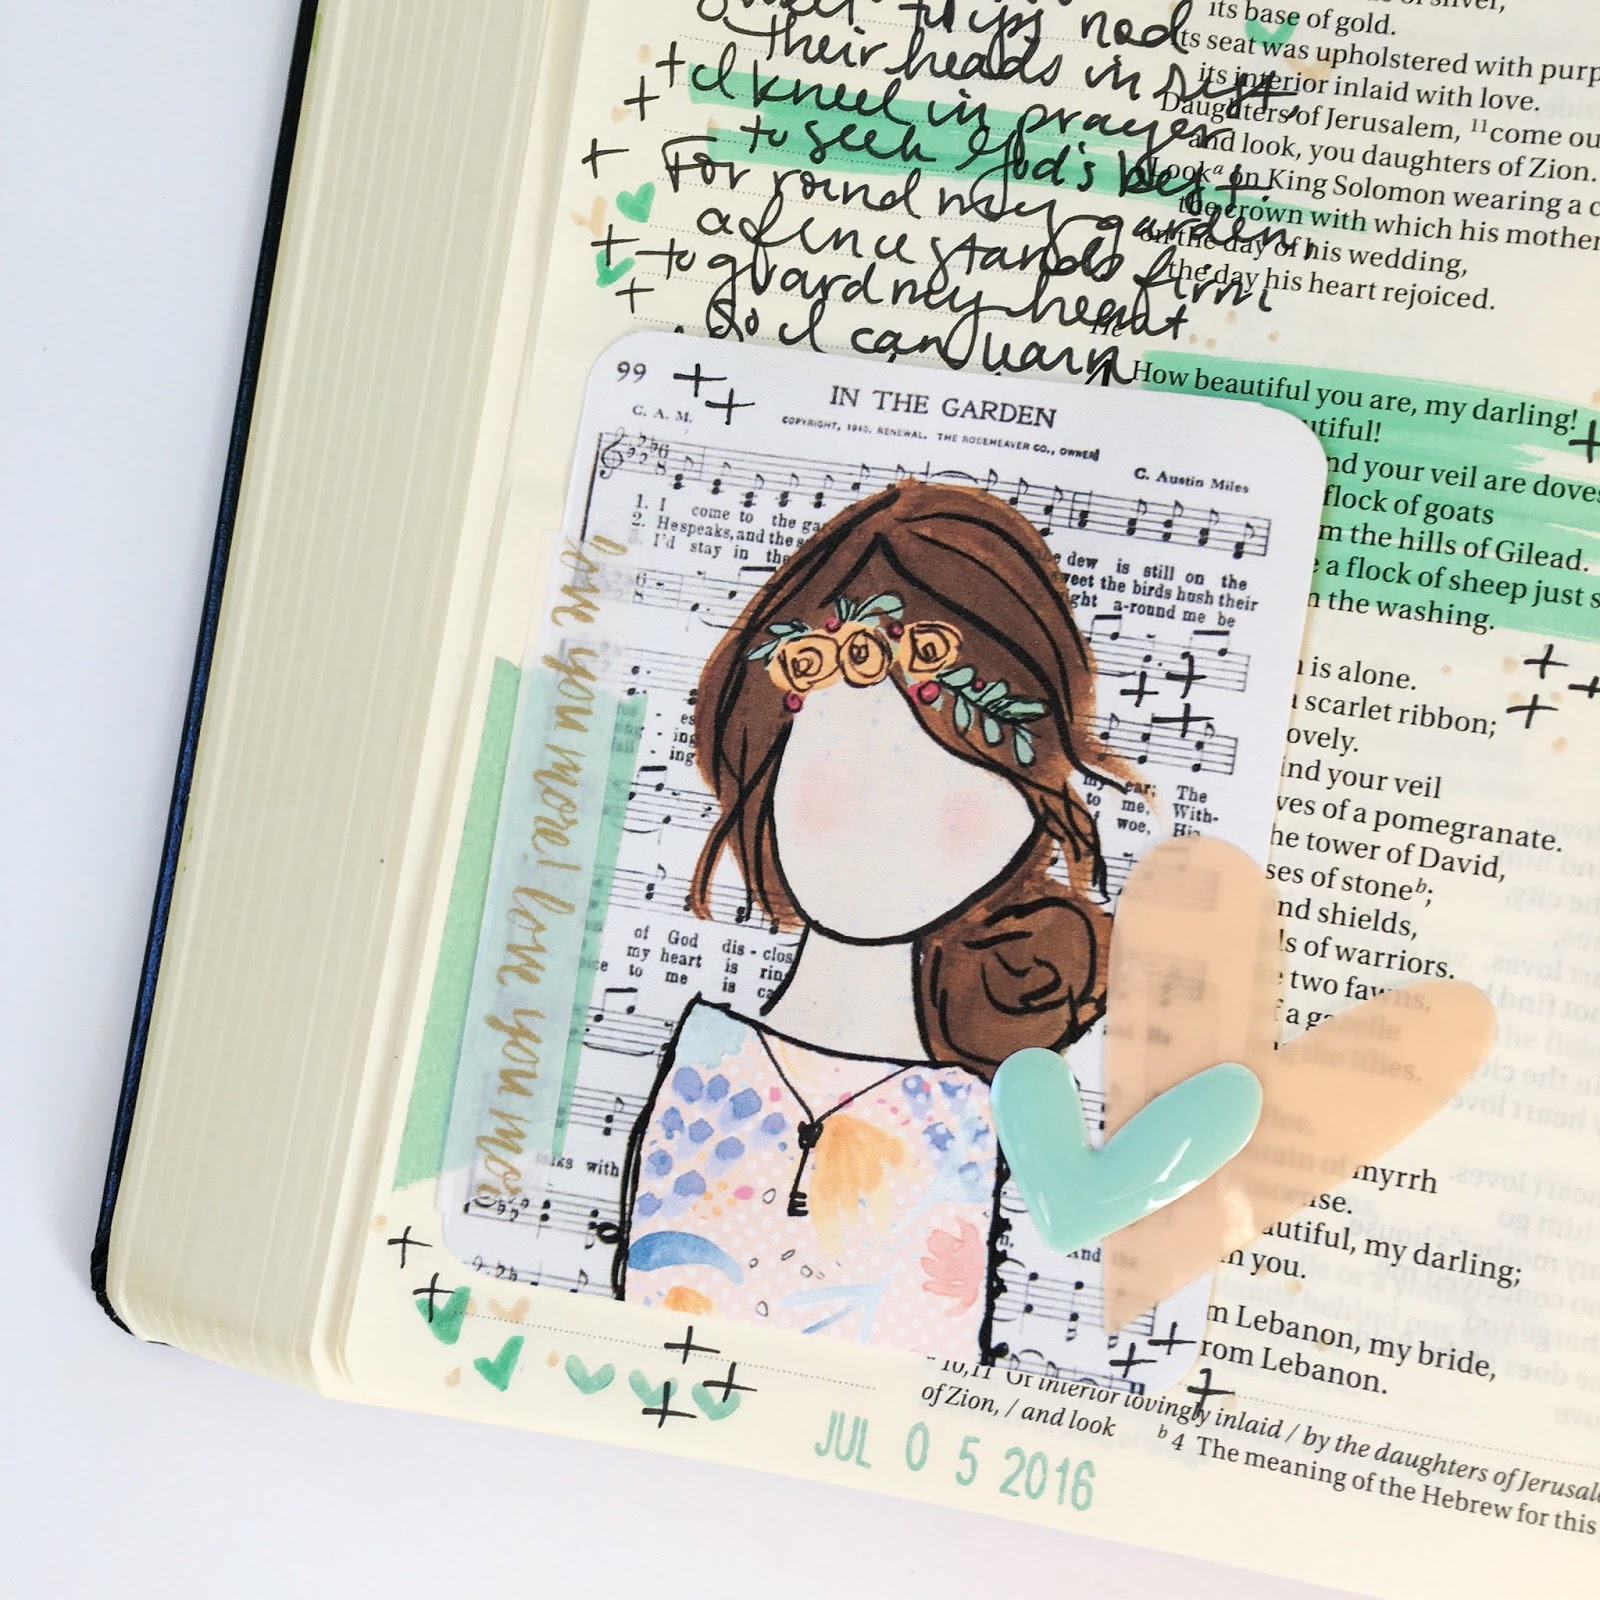 Sweet tulips nod
their heads in rest,
I kneel in prayer
to seek God's best.
For round my garden,
a fence stands firm
to guard my heart
So I can learn
its base of gold.
Its seat was upholstered with purp
its interior inlaid with love.
Daughters of Jerusalem, 11come ou
and look, you daughters of Zion.
Looka on King Solomon wearing a c
the crown with which his mother
on the day of his wedding,
the day his heart rejoiced.
He
How beautiful you are, my darling!
utiful!
nd your veil are doves
flock of goats
m the hills of Gilead.
e a flock of sheep just s
n the washing.
n is alone.
a scarlet ribbon;
ovely.
ind your veil
ves of a pomegranate.
he tower of David,
ses of stoneb;
nd shields,
ls of warriors.
e two fawns,
f a gazelle
the lilies.
myrrh
nse.
autiful, my darling;
n you.
m Lebanon, my bride,
rom Lebanon.
99
IN THE GARDEN
C. A. M.
COPYRIGHT, 1940, RENEWAL. THE RODEHEAVER CO., OWNER
C. Austin Miles
1. I come to the ga
2. He speaks, and the s
3. I'd stay in the
e dew is still on the
weet the birds hush their
ight a-round me be
es
ing
ing
my ear; The
to me, With-
f woe, His
of God dis - clos
my heart is rin
ice to me is ca
lks with
And the
love you more! love you mor
10,11 Or interior lovingly inlaid / by the daughters of Jerusal
of Zion, / and look
b 4 The meaning of the Hebrew for this
JUL 05 2016